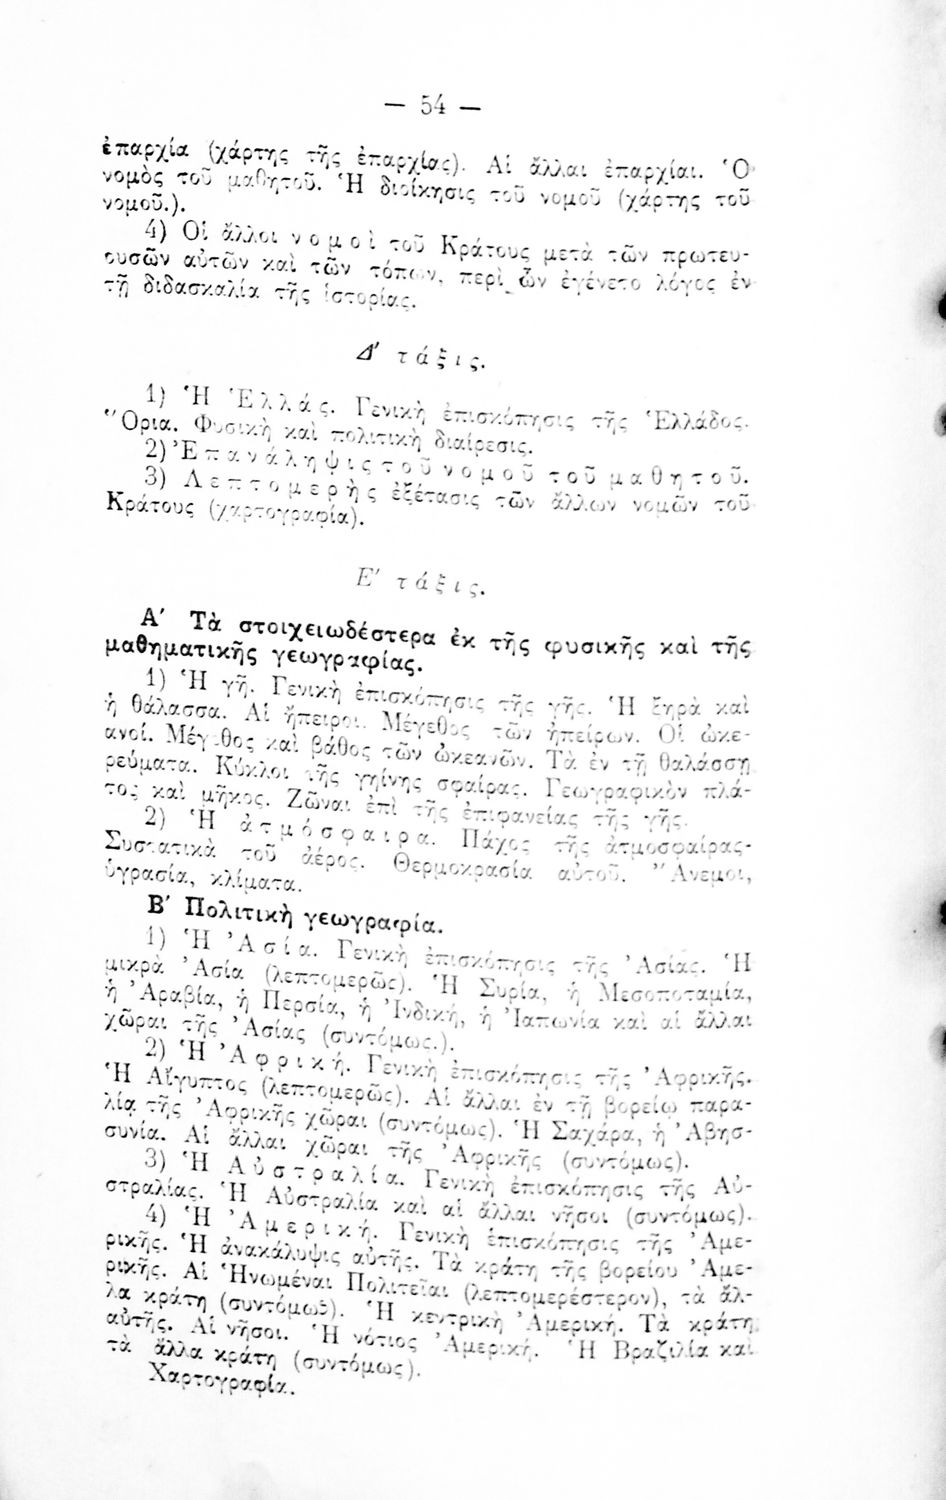 — 54 —
ἐπαρχία (χάρτης τῆς ἐπαρχίας). Αἱ ἄλλαι ἐπαρχίαι. Ὁ
νομὸς τοῦ μαθητοῦ. Ἡ διοίκησις τοῦ νομοῦ (χάρτης τοῦ
νομοῦ.).
4) Οἱ ἄλλοι νομοὶ τοῦ Κράτους μετὰ τῶν πρωτευ-
ουσῶν αὐτῶν καὶ τῶν τόπων, περὶ ὧν ἐγένετο λόγος ἐν
τῇ διδασκαλίᾳ τῆς ἱστορίας.
Δ′ τάξις.
1) Ἡ Ἑλλάς. Γενικὴ ἐπισκόπησις τῆς Ἑλλάδος.
Ὅρια. Φυσικὴ καὶ πολιτικὴ διαίρεσις.
2) Ἐπανάληψις τοῦ νομοῦ τοῦ μαθητοῦ.
3) Λεπτομερὴς ἐξέτασις τῶν ἄλλων νομῶν τοῦ
Κράτους (χαρτογραφία).
Ε′ τάξις.
Α′ Τὰ στοιχειωδέστερα ἐκ τῆς φυσικῆς καὶ τῆς
μαθηματικῆς γεωγραφίας.
1) Ἡ γῆ. Γενικὴ ἐπισκόπησις τῆς γῆς. Ἡ ξηρὰ καὶ
ἡ θάλασσα. Αἱ ἤπειροι. Μέγεθος τῶν ἠπείρων. Οἱ ὠκε-
ανοί. Μέγεθος καὶ βάθος τῶν ὠκεανῶν. Τὰ ἐν τῇ θαλάσσῃ
ρεύματα. Κύκλοι τῆς γηίνης σφαίρας. Γεωγραφικὸν πλά-
τος καὶ μῆκος. Ζῶναι ἐπὶ τῆς ἐπιφανείας τῆς γῆς.
2) Ἡ ἀτμόσφαιρα. Πάχος τῆς ἀτμοσφαίρας.
Συστατικὰ τοῦ ἀέρος. Θερμοκρασία αὐτοῦ. Ἄνεμοι,
ὑγρασία, κλίματα.
Β′ Πολιτικὴ γεωγραφία.
1) Ἡ Ἀσία. Γενικὴ ἐπισκόπησις τῆς Ἀσίας. Ἡ
μικρὰ Ἀσία (λεπτομερῶς). Ἡ Συρία, ἡ Μεσοποταμία,
ἡ Ἀραβία, ἡ Περσία, ἡ Ἰνδική, ἡ Ἰαπωνία καὶ αἱ ἄλλαι
χῶραι τῆς Ἀσίας (συντόμως.).
2) Ἡ Ἀφρική. Γενικὴ ἐπισκόπησις τῆς Ἀφρικῆς.
Ἡ Αἴγυπτος (λεπτομερῶς). Αἱ ἄλλαι ἐν τῇ βορείῳ παρα-
λίᾳ τῆς Ἀφρικῆς χῶραι (συντόμως). Ἡ Σαχάρα, ἡ Ἀβησ-
συνία. Αἱ ἄλλαι χῶραι τῆς Ἀφρικῆς (συντόμως).
3) Ἡ Αὐστραλία. Γενικὴ ἐπισκόπησις τῆς Αὐ-
στραλίας. Ἡ Αὐστραλία καὶ αἱ ἄλλαι νῆσοι (συντόμως).
4) Ἡ Ἀμερική. Γενικὴ ἐπισκόπησις τῆς Ἀμε-
ρικῆς. Ἡ ἀνακάλυψις αὐτῆς. Τὰ κράτη τῆς βορείου Ἀμε-
ρικῆς. Αἱ Ἡνωμέναι Πολιτεῖαι (λεπτομερέστερον), τὰ ἄλ-
λα κράτη (συντόμως). Ἡ κεντρικὴ Ἀμερική. Τὰ κράτη
αὐτῆς. Αἱ νῆσοι. Ἡ νότιος Ἀμερική. Ἡ Βραζιλία καὶ
τὰ ἄλλα κράτη (συντόμως).
Χαρτογραφία.